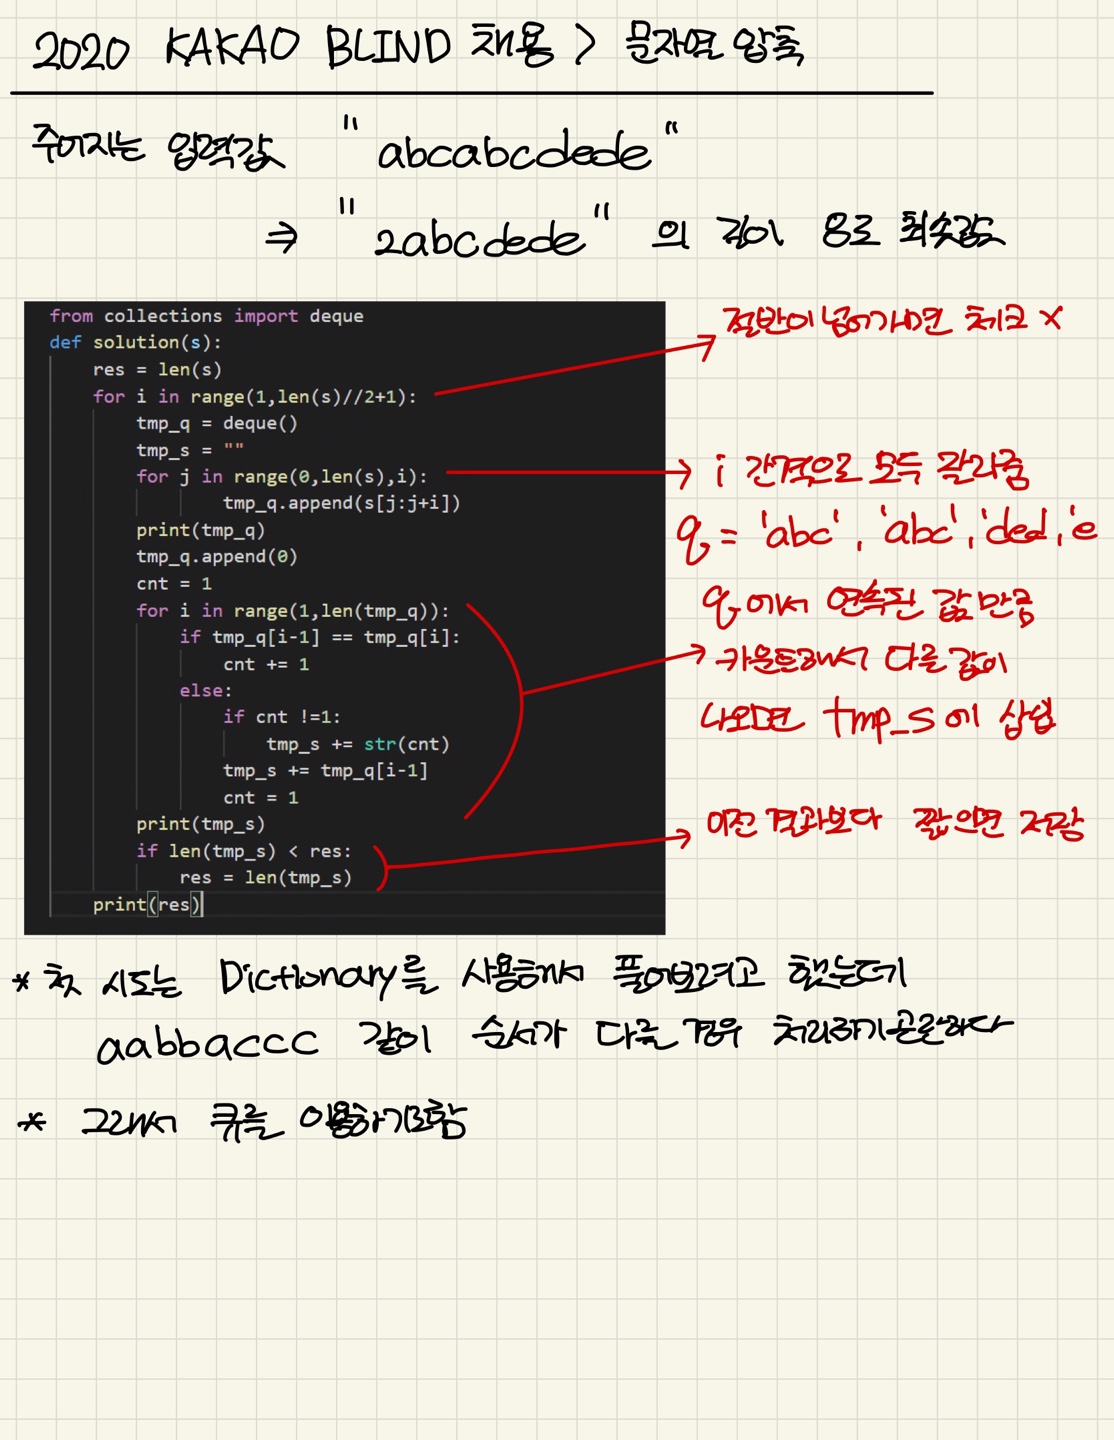 2020 KAKAO BLIND 채용 > 문자열 압축
주어지는 입력값 "abcabcdede"
⇒ "2abcdede" 의 길이 8로 최솟값
from collections import deque
def solution(s):
res = len(s)
for i in range(1,len(s)//2+1):
tmp_q = deque()
tmp_s = ""
for j in range(0,len(s),i):
tmp_q.append(s[j:j+i])
print(tmp_q)
tmp_q.append(0)
cnt = 1
for i in range(1,len(tmp_q)):
if tmp_q[i-1] == tmp_q[i]:
cnt += 1
else:
if cnt !=1:
tmp_s += str(cnt)
tmp_s += tmp_q[i-1]
cnt = 1
print(tmp_s)
if len(tmp_s) < res:
res = len(tmp_s)
print(res)
절반이 넘어가면 체크 x
i 간격으로 모두 잘라줌
q = 'abc', 'abc', 'ded, 'e
q에서 연속된 값 만큼
카운트해서 다른 값이
나오면 tmp_s에 삽입
이전 결과보다 짧으면 저장
* 첫 시도는 Dictionary를 사용해서 풀어보려고 했는데
aabbaccc 같이 순서가 다를 경우 처리하기 곤란하다
* 그래서 큐를 이용하기로함